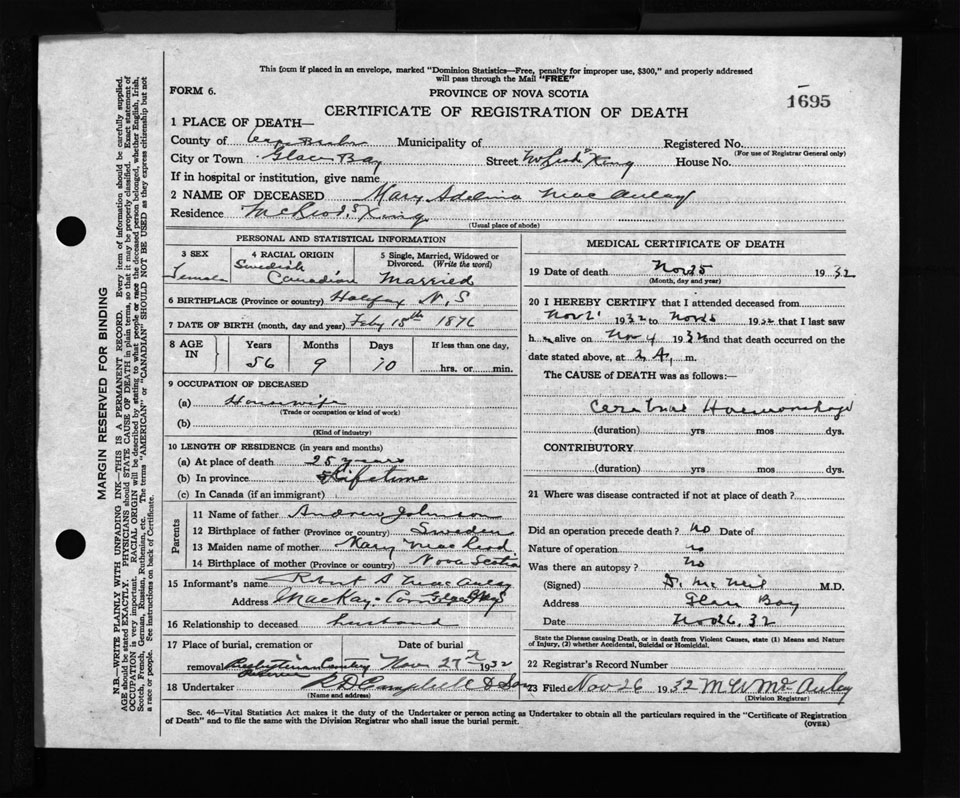 This form if placed in an envelope, marked "Dominion Statistics—Free, penalty for improper use, $300," and properly addressed
will pass through the Mail "FREE"
FORM 6.
PROVINCE OF NOVA SCOTIA
1695
CERTIFICATE OF REGISTRATION OF DEATH
1 PLACE OF DEATH—
County of Cape Breton Municipality of Registered No.
(For use of Registrar General only)
City or Town Glace Bay Street McLeod's Xing House No.
If in hospital or institution, give name
2 NAME OF DECEASED Mary Adelina MacAulay
Residence McLeod's Xing
(Usual place of abode)
PERSONAL AND STATISTICAL INFORMATION
3 SEX Female
4 RACIAL ORIGIN Swedish Canadian
5 Single, Married, Widowed or Divorced. (Write the word) Married
6 BIRTHPLACE (Province or country) Halifax N.S
7 DATE OF BIRTH (month, day and year) Feby 15th 1876
8 AGE IN Years Months Days If less than one day,
56 9 10 hrs. or min.
9 OCCUPATION OF DECEASED
(a) Housewife
(Trade or occupation or kind of work)
(b)
(Kind of industry)
10 LENGTH OF RESIDENCE (in years and months)
(a) At place of death 25 years
(b) In province Lifetime
(c) In Canada (if an immigrant)
Parents
11 Name of father Andrew Johnson
12 Birthplace of father (Province or country) Sweden
13 Maiden name of mother Mary MacLeod
14 Birthplace of mother (Province or country) Nova Scotia
15 Informant's name Robert S MacAulay
Address MacKay's Corner Glace Bay
16 Relationship to deceased husband
17 Place of burial, cremation or removal Presbyterian Cemetery
Date of burial Nov 27th 1932
18 Undertaker Campbell & Son
(Name and address)
MEDICAL CERTIFICATE OF DEATH
19 Date of death Nov 25 1932
(Month, day and year)
20 I HEREBY CERTIFY that I attended deceased from
Nov 21 1932 to Nov 25 1932 that I last saw
h alive on Nov 1932 and that death occurred on the
date stated above, at m.
The CAUSE of DEATH was as follows:—
Cerebral Haemorrhage
(duration) yrs mos dys.
CONTRIBUTORY
(duration) yrs mos dys.
21 Where was disease contracted if not at place of death?
Did an operation precede death? no Date of
Nature of operation no
Was there an autopsy? no
(Signed) D. McNeil M.D.
Address Glace Bay
Date Nov 26. 32
State the Disease causing Death, or in death from Violent Causes, state (1) Means and Nature
of Injury, (2) whether Accidental, Suicidal or Homicidal.
22 Registrar's Record Number
23 Filed Nov 26 1932 M W McAulay
(Division Registrar)
Sec. 46—Vital Statistics Act makes it the duty of the Undertaker or person acting as Undertaker to obtain all the particulars required in the "Certificate of Registration
of Death" and to file the same with the Division Registrar who shall issue the burial permit.
(OVER)
MARGIN RESERVED FOR BINDING
N.B.—WRITE PLAINLY WITH UNFADING INK—THIS IS A PERMANENT RECORD. Every item of information should be carefully supplied.
AGE should be stated EXACTLY. PHYSICIANS should STATE CAUSE OF DEATH in plain terms, so that it may be properly classified. Exact statement of
OCCUPATION is very important. RACIAL ORIGIN will be described by stating to what people or race the deceased person belonged, whether English, Irish,
Scotch, French, German, Russian, Ruthenian, etc. The terms "AMERICAN" or "CANADIAN" SHOULD NOT BE USED as they express citizenship but not
a race or people. See instructions on back of Certificate.